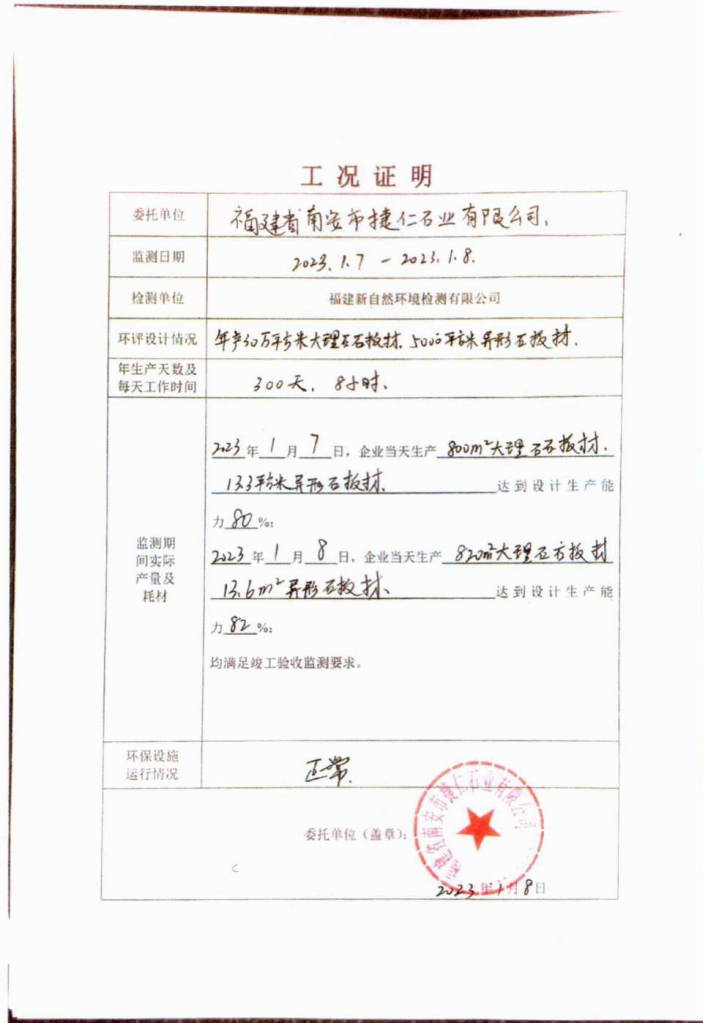 工况证明
委托单位
福建省南安市捷仁石业有限公司、
监测日期
2023.1.7 - 2023.1.8.
检测单位
福建新自然环境检测有限公司
环评设计情况
年产30万平方米大理石石板材、5000平方米异形石板材、
年生产天数及
每天工作时间
300天、8小时、
监测期
间实际
产量及
耗材
2023年1月7日,企业当天生产 800m²大理石石板材、
13.3平方米异形石板材、 达到设计生产能
力80%;
2023年1月8日、企业当天生产 820m²大理石方板材
13.6m²异形石板材、 达到设计生产能
力82%;
均满足竣工验收监测要求。
环保设施
运行情况
正常.
福建省南安市捷仁石业有限公司
委托单位(盖章):
2023年1月8日